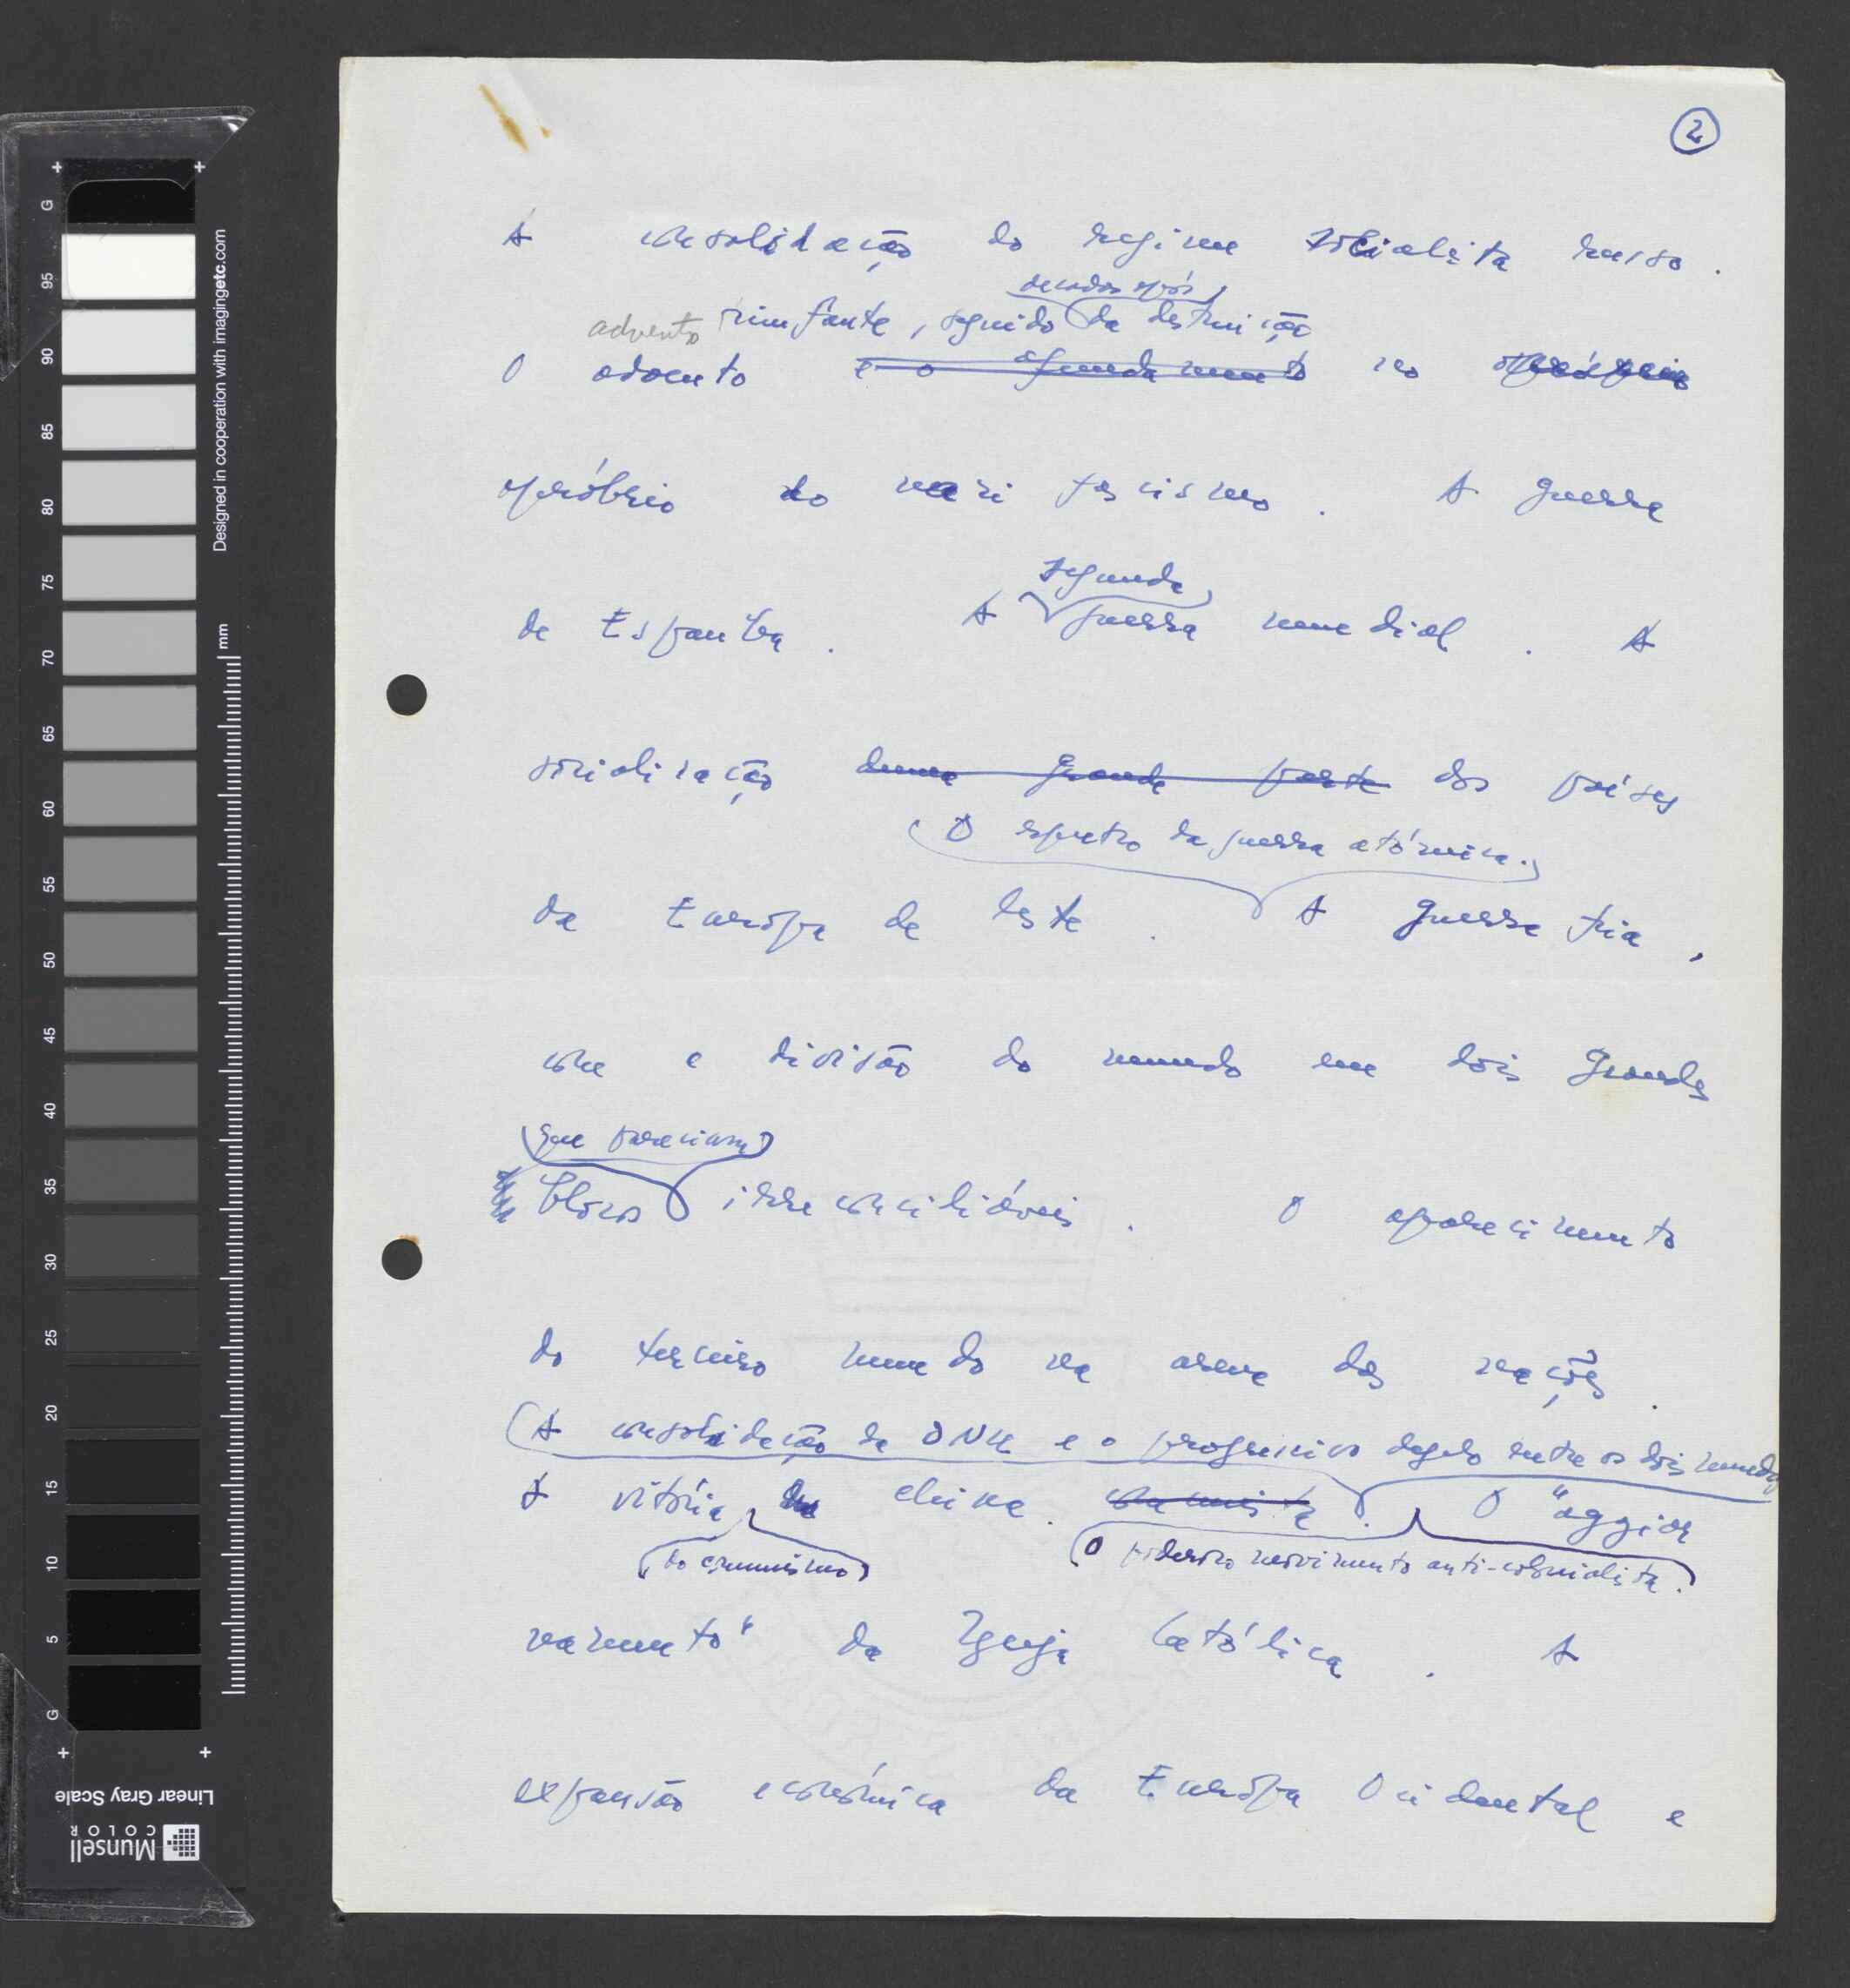 2
A consolidação do regime socialista russo.
decadas após
advento triunfante, seguido da destruição
O advento e o afundamento no opróbrio
opróbrio do nazi fascismo. A guerra
segunda
de Espanha. A guerra mundial. A
socialização duma grande parte dos países
O espectro da guerra atómica.
da Europa de leste. A guerra fria,
com a divisão do mundo em dois grandes
que pareciam
blocos irreconciliáveis. O aparecimento
do terceiro mundo na arena das nações.
A consolidação da ONU e o progressivo degelo entre os dois mundos
A vitória na china. comunista. O "aggior
do comunismo
O poderoso movimento anti-colonialista.
namento" da Igreja Católica. A
expansão económica da Europa Ocidental e
G
95
90
85
80
75
70
65
60
55
50
45
40
35
30
25
20
15
10
5
G
mm
Designed in cooperation with imagingetc.com
Linear Gray Scale
Munsell
COLOR